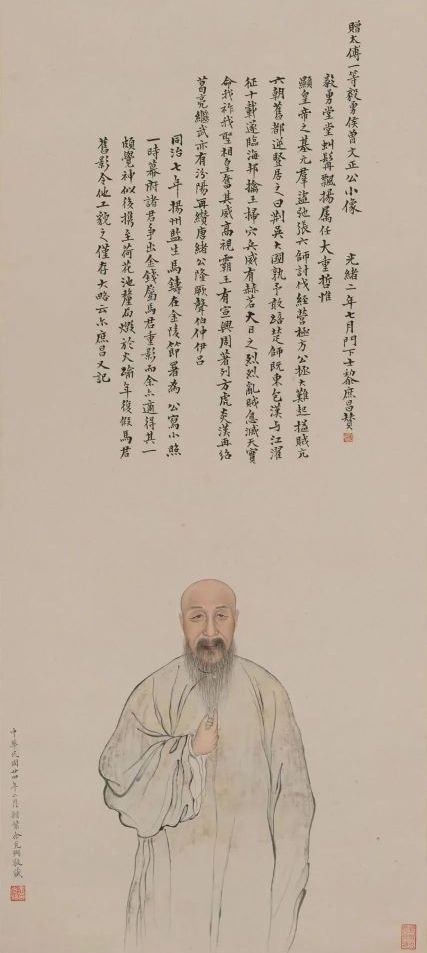 贈太傅一等毅勇侯曾文正公小像
光緒二年七月門下士黎庶昌贊
毅勇堂堂虯髯飄揚属任大重哲惟
顯皇帝之基元羣盜弛張六師討伐經營極方公拯大難起搤賊亢
六朝舊都逆豎居之曰荆吴大國孰予敢綹楚師既東包漢与江濯
征十載遂臨海邦擒王掃穴兵威有赫若大日之烈烈亂賊怠滅天實
命我祚我聖相皇奮其威高視霸王有宣興周著列方虎炎漢再紹
葛亮繼武亦有汾陽再纘唐緒公隆厥聲伯仲伊吕
同治七年揚州監生馬鑄在金陵節署為公寫小照
一時幕府諸君爭出金錢属馬君重影而余亦適得其一
頗覺神似後携至荷花池釐局燬於火踰年復假馬君
舊影令他工貌之僅存大略云尔庶昌又記
中華民國廿四年二月
敬識